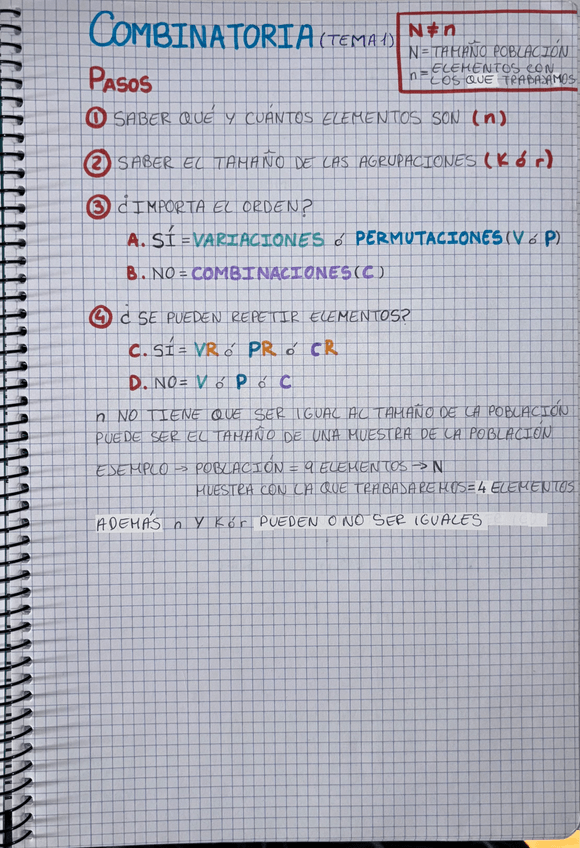 COMBINATORIA (TEMA 1)
N ≠ n
N = TAMAÑO POBLACIÓN
n = ELEMENTOS CON
LOS QUE TRABAJAMOS
PASOS
① SABER QUÉ Y CUÁNTOS ELEMENTOS SON (n)
② SABER EL TAMAÑO DE LAS AGRUPACIONES (K ó r)
③ ¿IMPORTA EL ORDEN?
A. SÍ = VARIACIONES ó PERMUTACIONES (V ó P)
B. NO = COMBINACIONES (C)
④ ¿SE PUEDEN REPETIR ELEMENTOS?
C. SÍ = VR ó PR ó CR
D. NO = V ó P ó C
n NO TIENE QUE SER IGUAL AL TAMAÑO DE LA POBLACIÓN
PUEDE SER EL TAMAÑO DE UNA MUESTRA DE LA POBLACIÓN
EJEMPLO → POBLACIÓN = 9 ELEMENTOS → N
MUESTRA CON LA QUE TRABAJAREMOS = 4 ELEMENTOS
ADEMÁS n Y K ó r PUEDEN O NO SER IGUALES